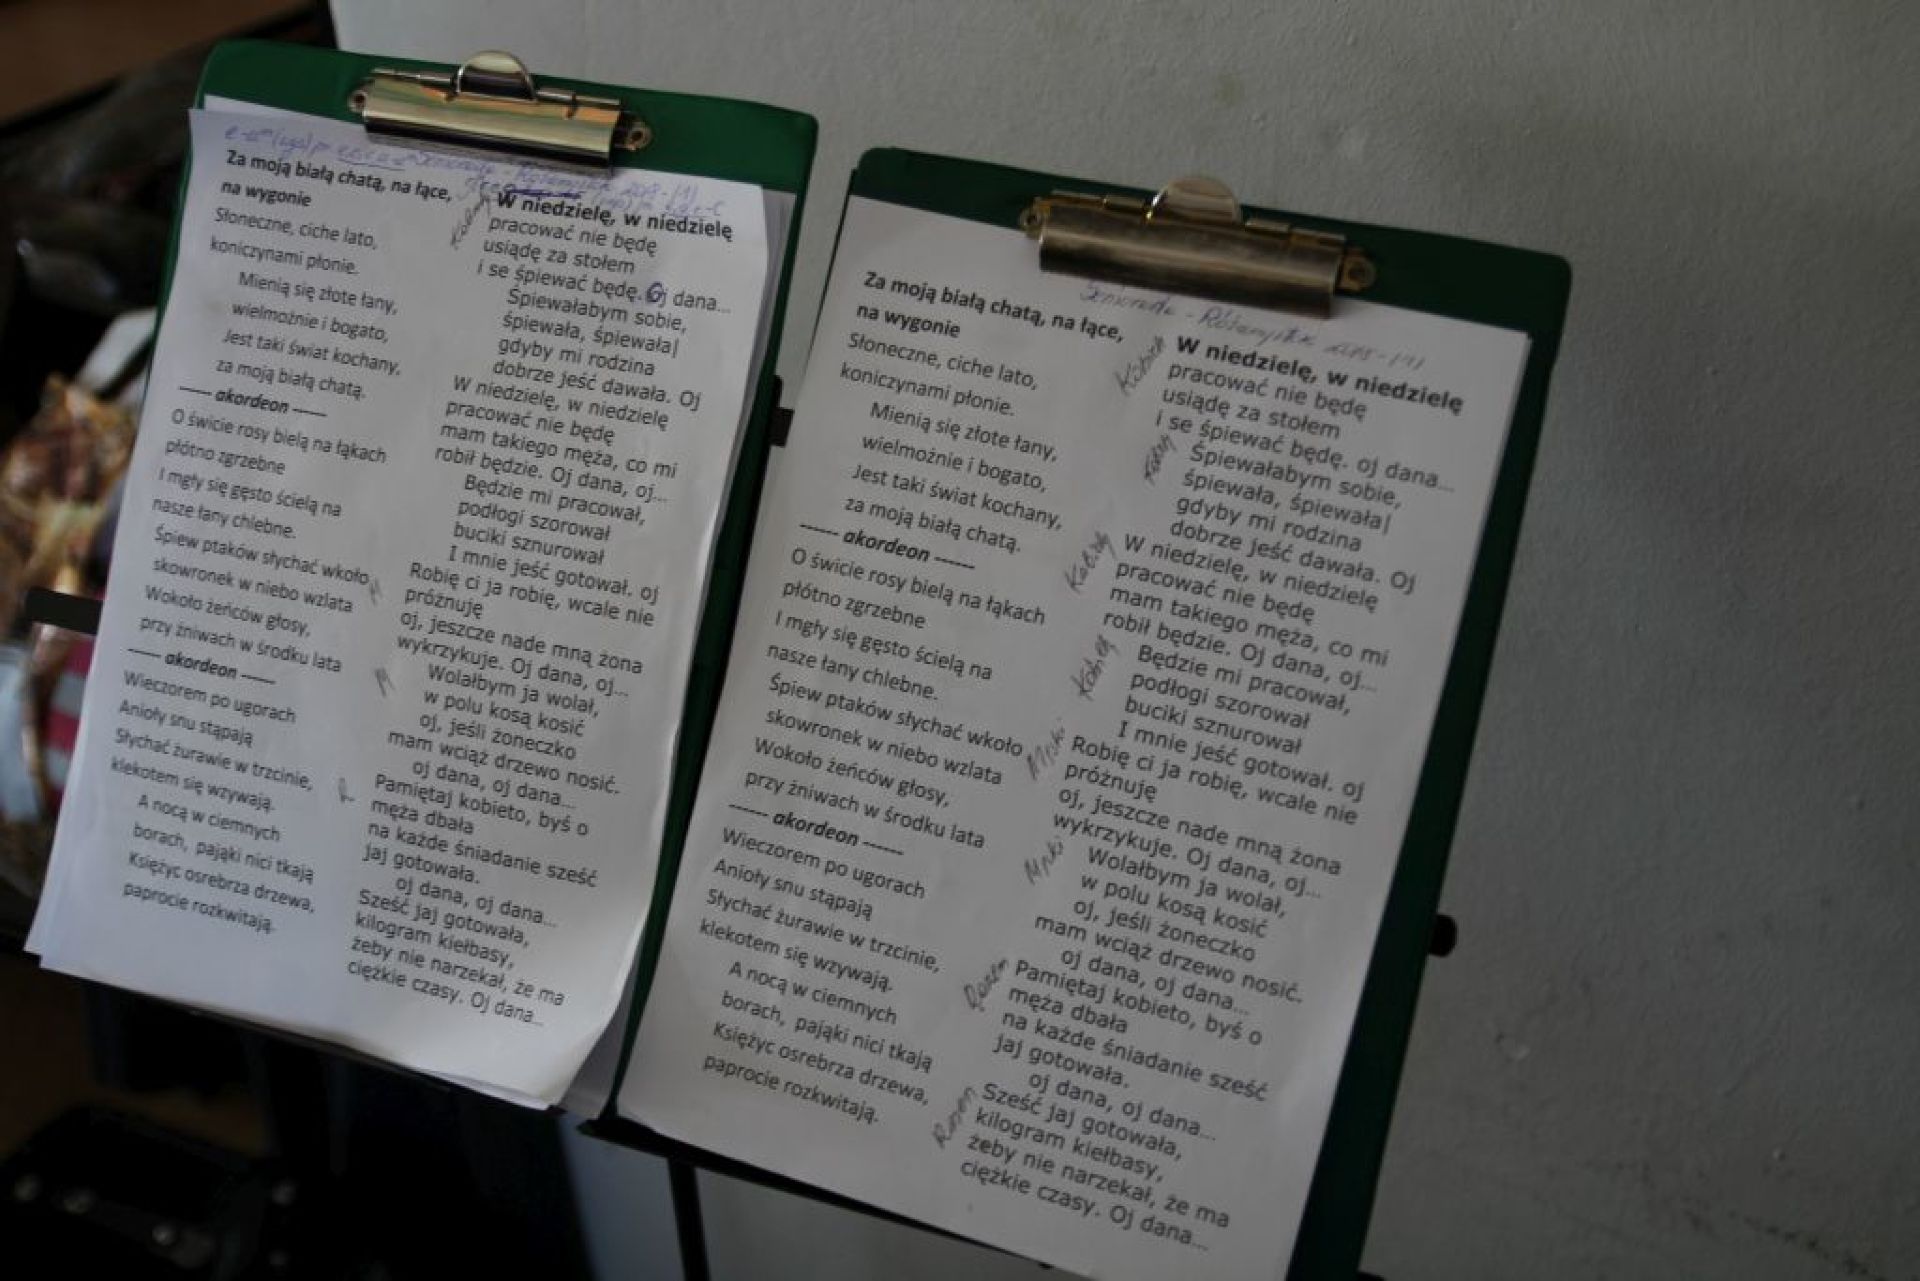 Za moją białą chatą, na łące,
na wygonie
Słoneczne, ciche lato,
koniczynami płonie.
Mienią się złote łany,
wielmożnie i bogato,
Jest taki świat kochany,
za moją białą chatą.
------ akordeon ------
O świcie rosy bielą na łąkach
płótno zgrzebne
I mgły się gęsto ścielą na
nasze łany chlebne.
Śpiew ptaków słychać wkoło
skowronek w niebo wzlata
Wokoło żeńców głosy,
przy żniwach w środku lata
------ akordeon ------
Wieczorem po ugorach
Anioły snu stąpają
Słychać żurawie w trzcinie,
klekotem się wzywają.
A nocą w ciemnych
borach, pająki nici tkają
Księżyc osrebrza drzewa,
paprocie rozkwitają.
W niedzielę, w niedzielę
pracować nie będę
usiądę za stołem
i se śpiewać będę. Oj dana...
Śpiewałabym sobie,
śpiewała, śpiewała|
gdyby mi rodzina
dobrze jeść dawała. Oj
W niedzielę, w niedzielę
pracować nie będę
mam takiego męża, co mi
robił będzie. Oj dana, oj...
Będzie mi pracował,
podłogi szorował
buciki sznurował
I mnie jeść gotował. oj
Robię ci ja robię, wcale nie
próżnuję
oj, jeszcze nade mną żona
wykrzykuje. Oj dana, oj...
Wolałbym ja wolał,
w polu kosą kosić
oj, jeśli żoneczko
mam wciąż drzewo nosić.
oj dana, oj dana...
Pamiętaj kobieto, byś o
męża dbała
na każde śniadanie sześć
jaj gotowała.
oj dana, oj dana...
Sześć jaj gotowała,
kilogram kiełbasy,
żeby nie narzekał, że ma
ciężkie czasy. Oj dana...
Za moją białą chatą, na łące,
na wygonie
Słoneczne, ciche lato,
koniczynami płonie.
Mienią się złote łany,
wielmożnie i bogato,
Jest taki świat kochany,
za moją białą chatą.
------ akordeon ------
O świcie rosy bielą na łąkach
płótno zgrzebne
I mgły się gęsto ścielą na
nasze łany chlebne.
Śpiew ptaków słychać wkoło
skowronek w niebo wzlata
Wokoło żeńców głosy,
przy żniwach w środku lata
------ akordeon ------
Wieczorem po ugorach
Anioły snu stąpają
Słychać żurawie w trzcinie,
klekotem się wzywają.
A nocą w ciemnych
borach, pająki nici tkają
Księżyc osrebrza drzewa,
paprocie rozkwitają.
W niedzielę, w niedzielę
pracować nie będę
usiądę za stołem
i se śpiewać będę. oj dana...
Śpiewałabym sobie,
śpiewała, śpiewała|
gdyby mi rodzina
dobrze jeść dawała. Oj
W niedzielę, w niedzielę
pracować nie będę
mam takiego męża, co mi
robił będzie. Oj dana, oj...
Będzie mi pracował,
podłogi szorował
buciki sznurował
I mnie jeść gotował. oj
Robię ci ja robię, wcale nie
próżnuję
oj, jeszcze nade mną żona
wykrzykuje. Oj dana, oj...
Wolałbym ja wolał,
w polu kosą kosić
oj, jeśli żoneczko
mam wciąż drzewo nosić.
oj dana, oj dana...
Razem
Pamiętaj kobieto, byś o
męża dbała
na każde śniadanie sześć
jaj gotowała.
oj dana, oj dana...
Razem
Sześć jaj gotowała,
kilogram kiełbasy,
żeby nie narzekał, że ma
ciężkie czasy. Oj dana...